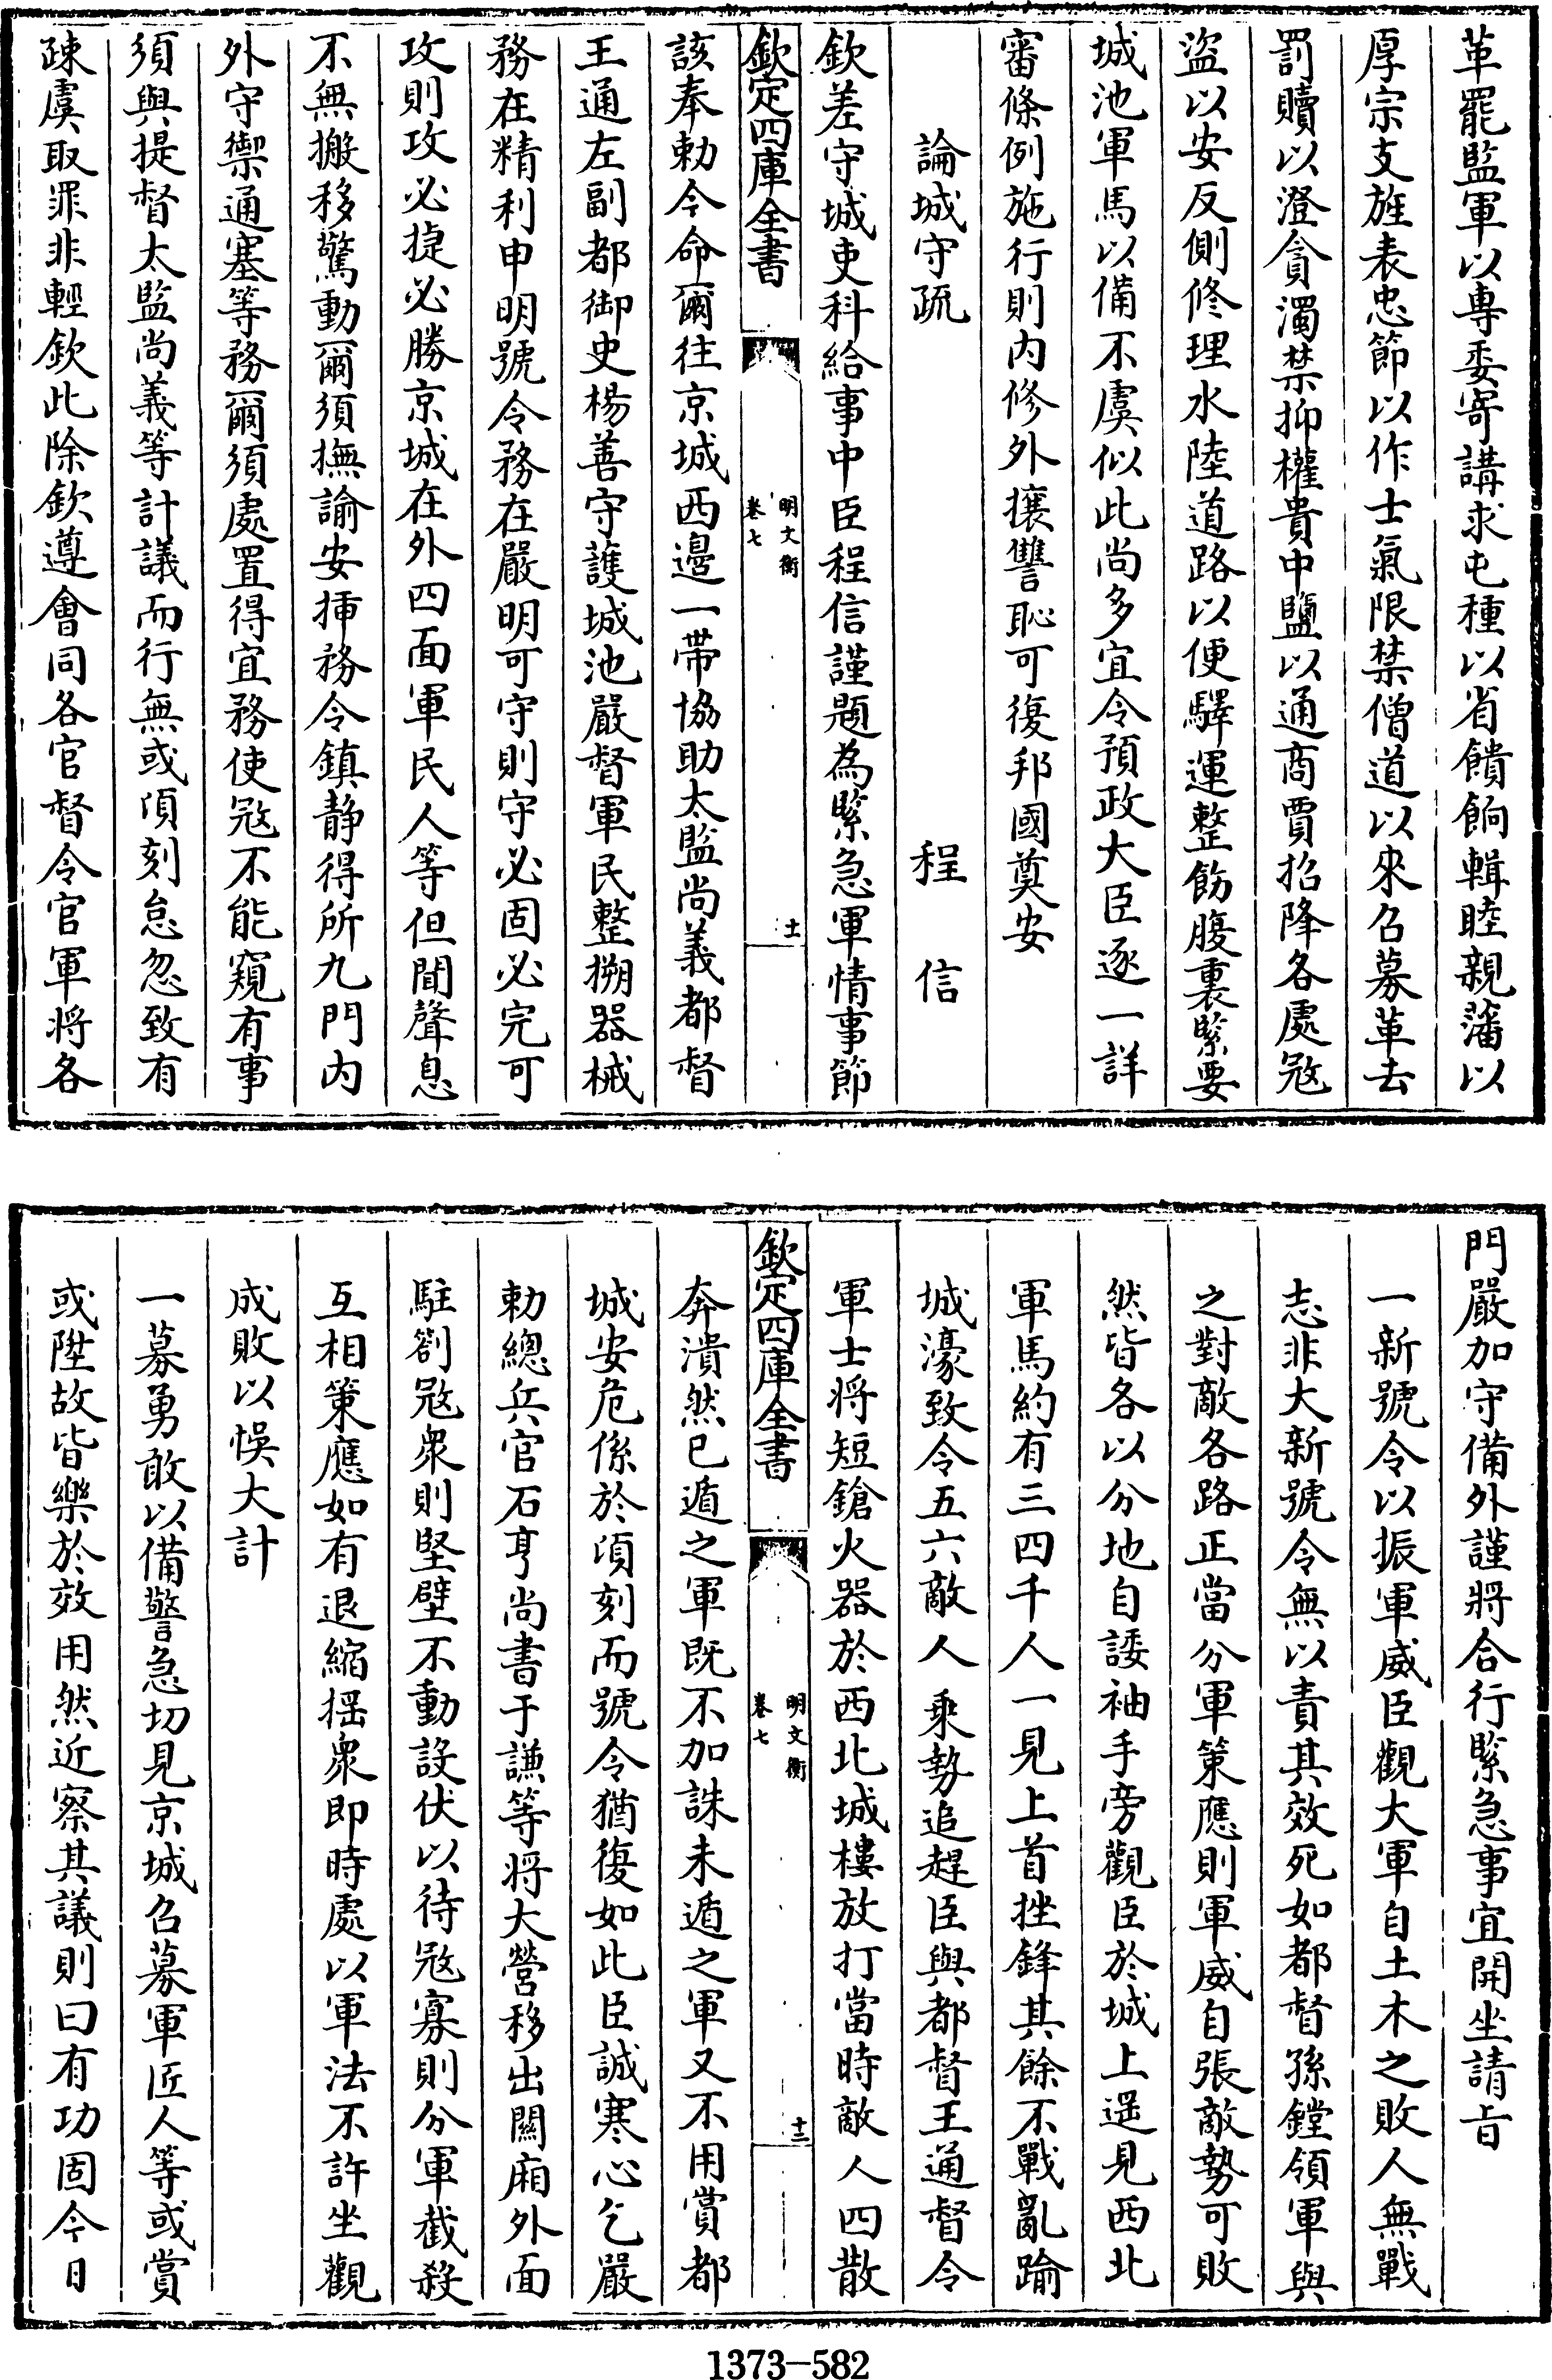 革罷監軍以專委寄講求屯種以省饋餉輯睦親藩以
厚宗支旌表忠節以作士氣限禁僧道以來召募革去
罰贖以澄貪濁禁抑權貴中鹽以通商賈招降各處冦
盜以安反側修理水陸道路以便驛運整飭腹裏緊要
城池軍馬以備不虞似此尚多宜令預政大臣逐一詳
審條例施行則内修外攘讐恥可復邦國奠安
論城守疏　程信
欽差守城吏科給事中臣程信謹題為緊急軍情事節
欽定四庫全書　明文衡　卷七　十一
該奉勅令命爾往京城西邊一帶協助太監尚義都督
王通左副都御史楊善守護城池嚴督軍民整搠器械
務在精利申明號令務在嚴明可守則守必固必完可
攻則攻必捷必勝京城在外四面軍民人等但聞聲息
不無搬移驚動爾須撫諭安揷務令鎮静得所九門内
外守禦通塞等務爾須處置得宜務使冦不能窺有事
須與提督太監尚義等計議而行無或頃刻怠忽致有
疎虞取罪非輕欽此除欽遵會同各官督令官軍将各
門嚴加守備外謹將合行緊急事宜開坐請旨
一新號令以振軍威臣觀大軍自土木之敗人無戰
志非大新號令無以責其效死如都督孫鏜領軍與
之對敵各路正當分軍策應則軍威自張敵勢可敗
然皆各以分地自諉袖手旁觀臣於城上遥見西北
軍馬約有三四千人一見上首挫鋒其餘不戰亂踰
城濠致令五六敵人乘勢追趕臣與都督王通督令
軍士将短鎗火器於西北城樓放打當時敵人四散
欽定四庫全書　明文衡　卷七　十二
奔潰然已遁之軍既不加誅未遁之軍又不用賞都
城安危係於頃刻而號令猶復如此臣誠寒心乞嚴
勅總兵官石亨尚書于謙等将大營移出關廂外面
駐劄冦衆則堅壁不動設伏以待冦寡則分軍截殺
互相策應如有退縮揺衆即時處以軍法不許坐觀
成敗以悞大計
一募勇敢以備警急切見京城召募軍匠人等或賞
或陞故皆樂於效用然近察其議則曰有功固今日
1373—582